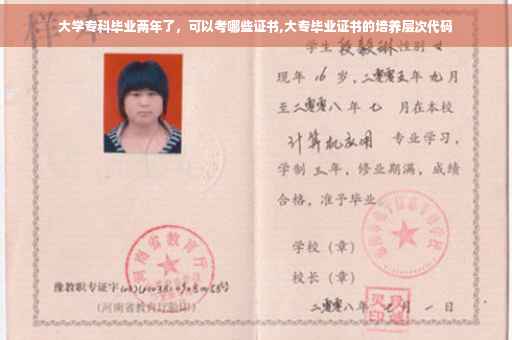 大学专科毕业两年了，可以考哪些证书,大专毕业证书的培养层次代码
样本
学生 段毅琳 性别 女
现年 16 岁，二零零五年 九月
至二零零八年 七 月在本校
计算机应用 专业学习，
学制 三年，修业期满，成绩
合格，准予毕业
学校（章）
校长（章）
二零零八年 七 月 一 日
河南省教育厅
豫教职专证字
(河南省教育厅验印)